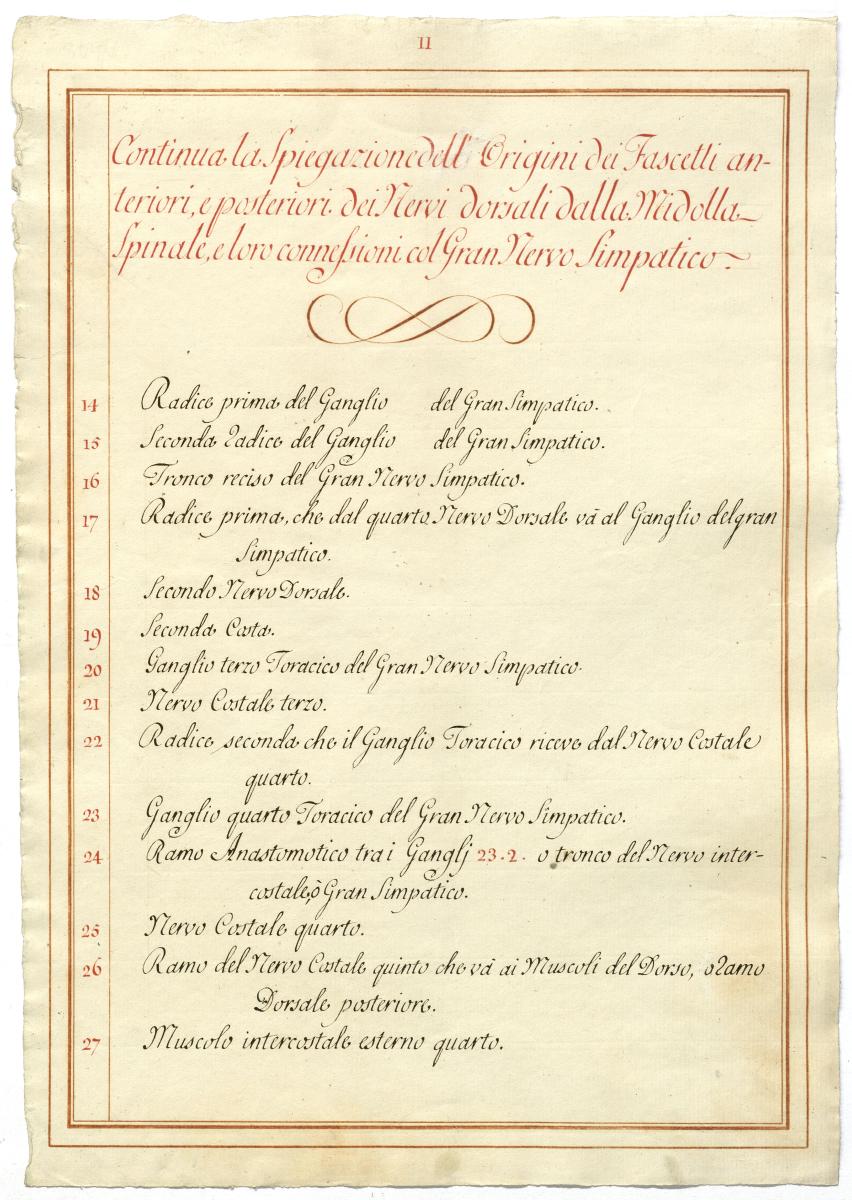 II
Continua la Spiegazione dell' Origini dei Fascetti an-
teriori, e posteriori dei Nervi dorsali dalla Midolla
Spinale, e loro connessioni col Gran Nervo Simpatico.
14 Radice prima del Ganglio del Gran Simpatico.
15 Seconda radice del Ganglio del Gran Simpatico.
16 Tronco reciso del Gran Nervo Simpatico.
17 Radice prima, che dal quarto Nervo Dorsale và al Ganglio del gran
Simpatico.
18 Secondo Nervo Dorsale.
19 Seconda Costa.
20 Ganglio terzo Toracico del Gran Nervo Simpatico.
21 Nervo Costale terzo.
22 Radice seconda che il Ganglio Toracico riceve dal Nervo Costale
quarto.
23 Ganglio quarto Toracico del Gran Nervo Simpatico.
24 Ramo Anastomotico tra i Ganglj 23.2. o tronco del Nervo inter-
costale, ò Gran Simpatico.
25 Nervo Costale quarto.
26 Ramo del Nervo Costale quinto che và ai Muscoli del Dorso, o ramo
Dorsale posteriore.
27 Muscolo intercostale esterno quarto.